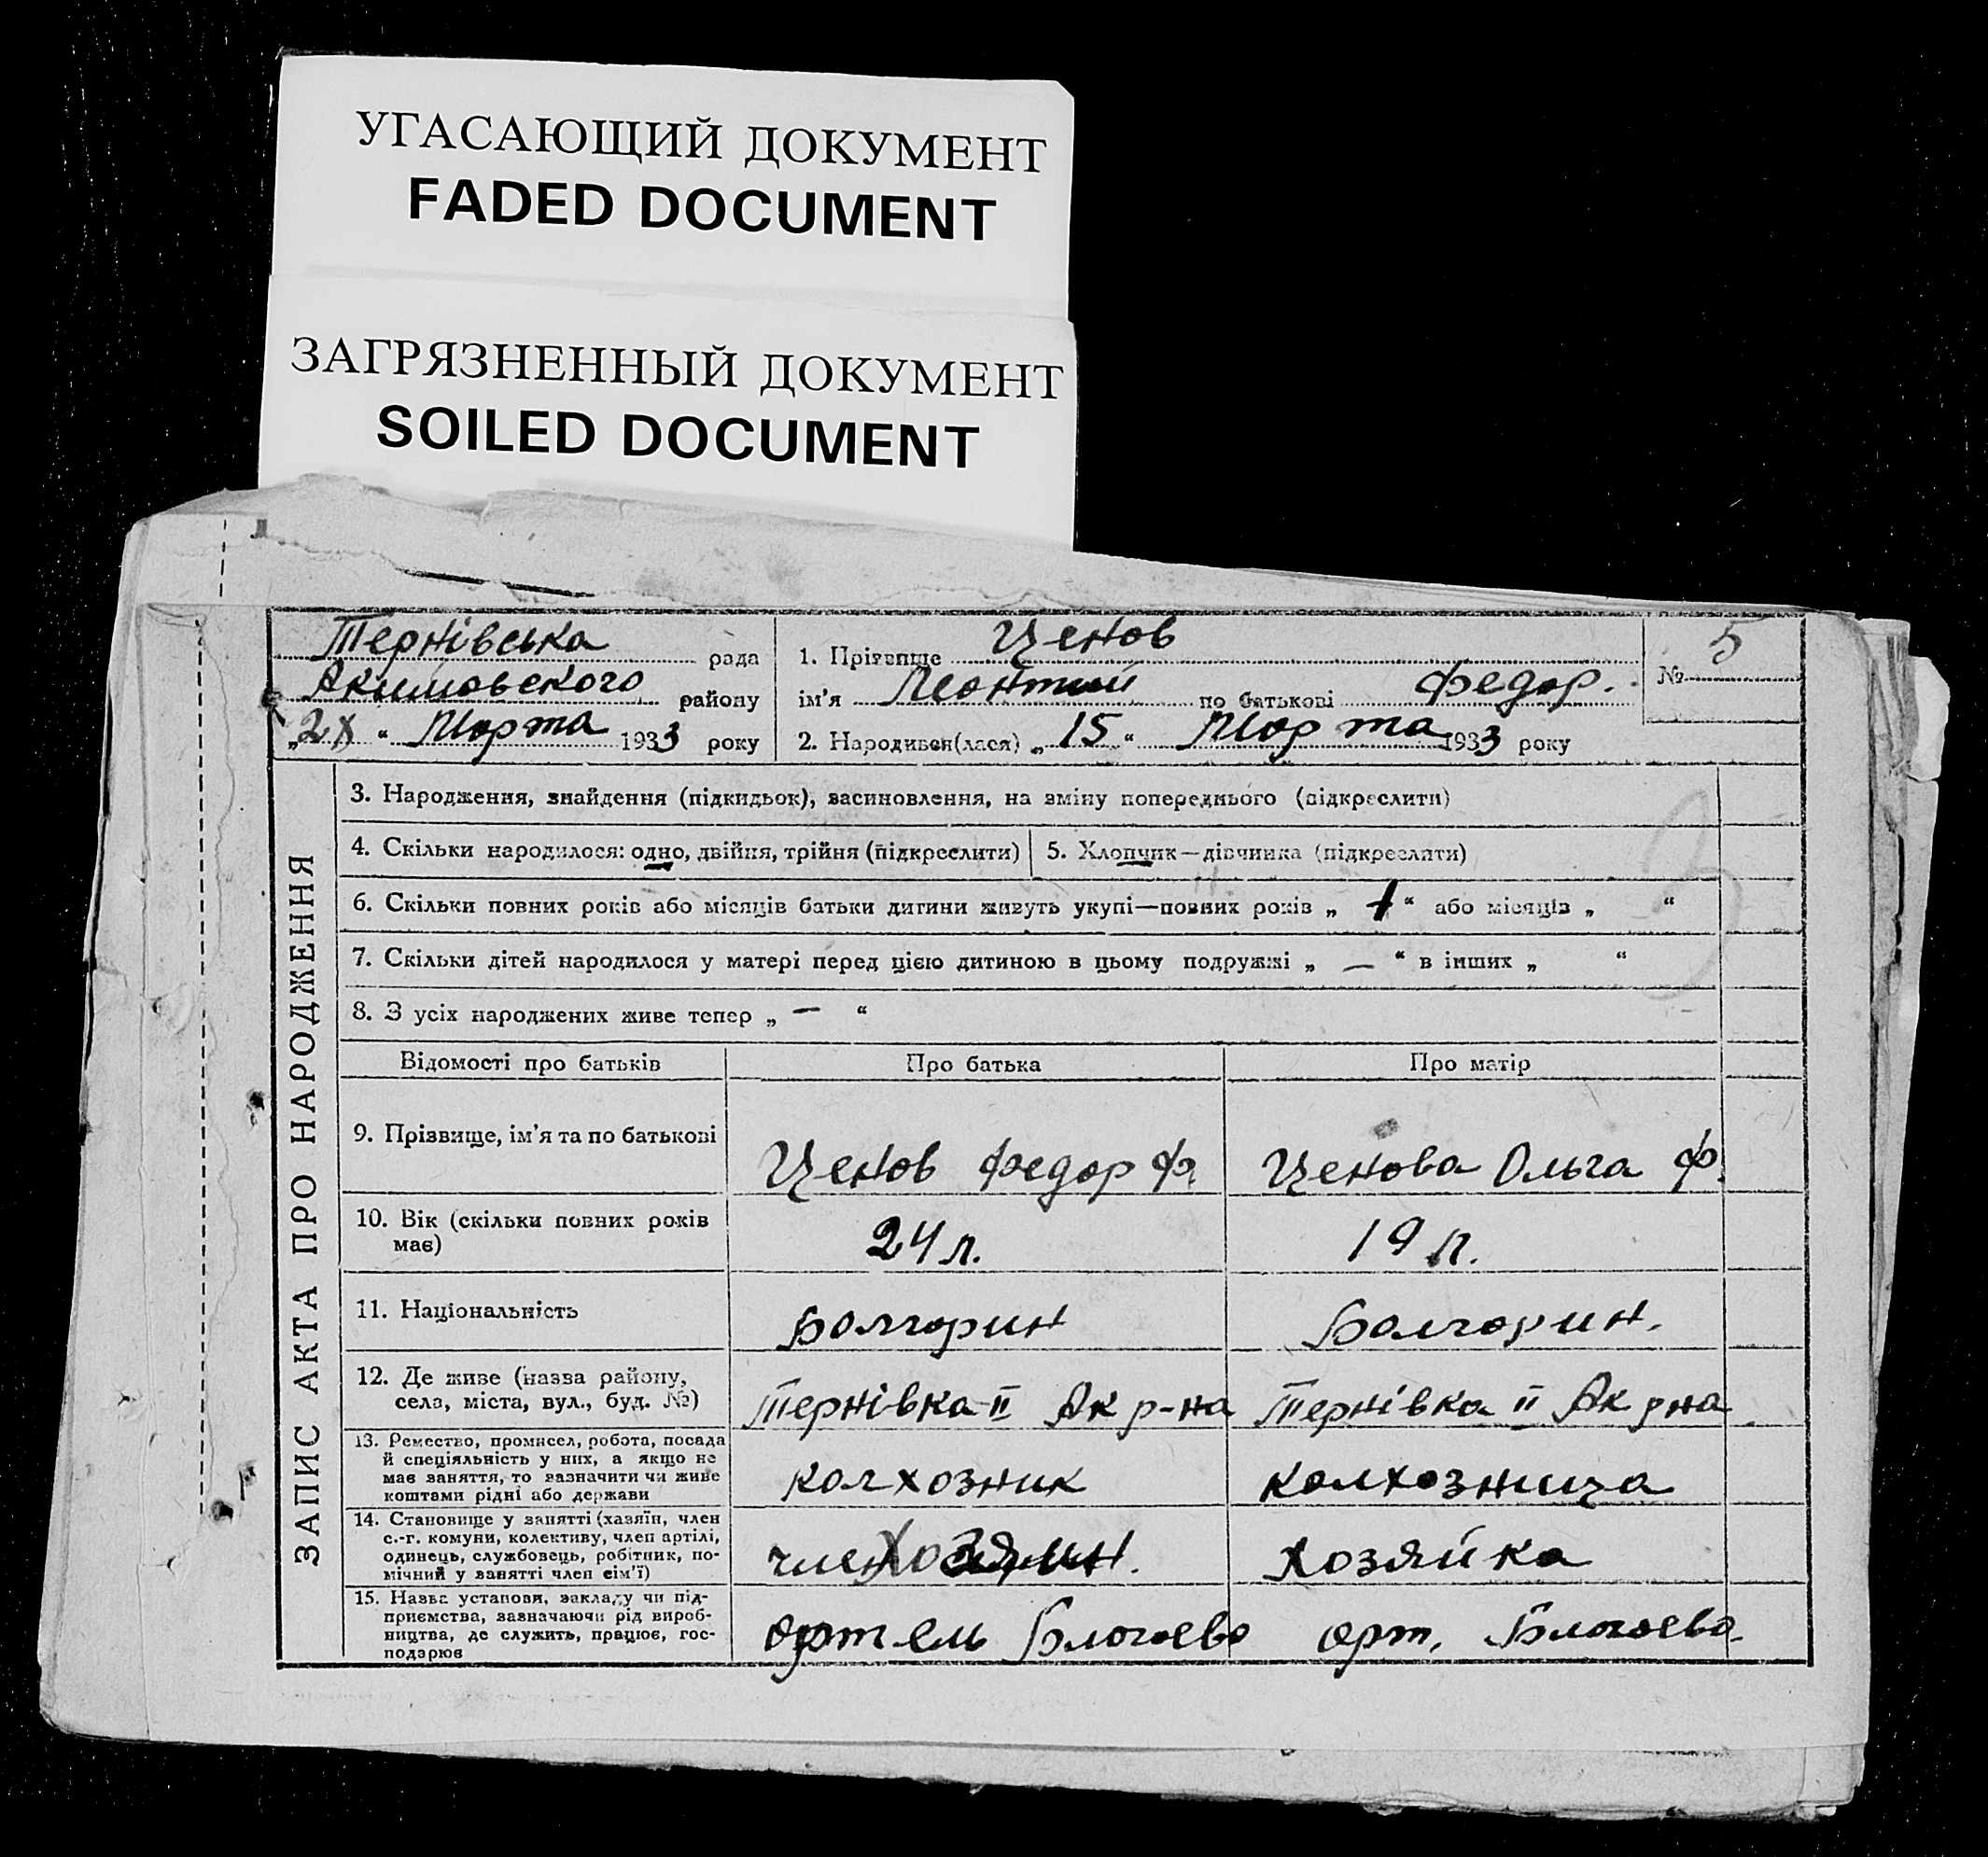 УГАСАЮЩИЙ ДОКУМЕНТ
FADED DOCUMENT
ЗАГРЯЗНЕННЫЙ ДОКУМЕНТ
SOILED DOCUMENT
Тернівська рада
Акимовского району
„ “ Марта 1933 року
1. Прізвище Ценов
ім’я Леонтий по батькові Федор.
2. Народився(лася) „15“ Марта 1933 року
№ 5
ЗАПИС АКТА ПРО НАРОДЖЕННЯ
3. Народження, знайдення (підкидьок), засиновлення, на зміну попереднього (підкреслити)
4. Скільки народилося: одно, двійня, трійня (підкреслити)
5. Хлопчик—дівчинка (підкреслити)
6. Скільки повних років або місяців батьки дитини живуть укупі—повних років „ “ або місяців „ “
7. Скільки дітей народилося у матері перед цією дитиною в цьому подружжі „ — “ в інших „ “
8. З усіх народжених живе тепер „ — “
Відомості про батьків Про батька Про матір
9. Прізвище, ім’я та по батькові Ценов Федор Ф. Ценова Ольга Ф.
10. Вік (скільки повних років
має) 24 л. 19 л.
11. Національність Болгарин Болгарин.
12. Де живе (назва району,
села, міста, вул., буд. №) Тернівка II Ак р-на Тернівка II Ак рна
13. Ремество, промисел, робота, посада
й спеціяльність у них, а якщо не
має заняття, то зазначити чи живе
коштами рідні або держави колхозник колхозница
14. Становище у занятті (хазяїн, член
с.-г. комуни, колективу, член артілі,
одинець, службовець, робітник, по-
мічний у занятті член сім’ї) член Хозяйка
15. Назва установи, закладу чи під-
приємства, зазначаючи рід вироб-
ництва, де служить, працює, гос-
подарює Артель Благоева арт. Благоева